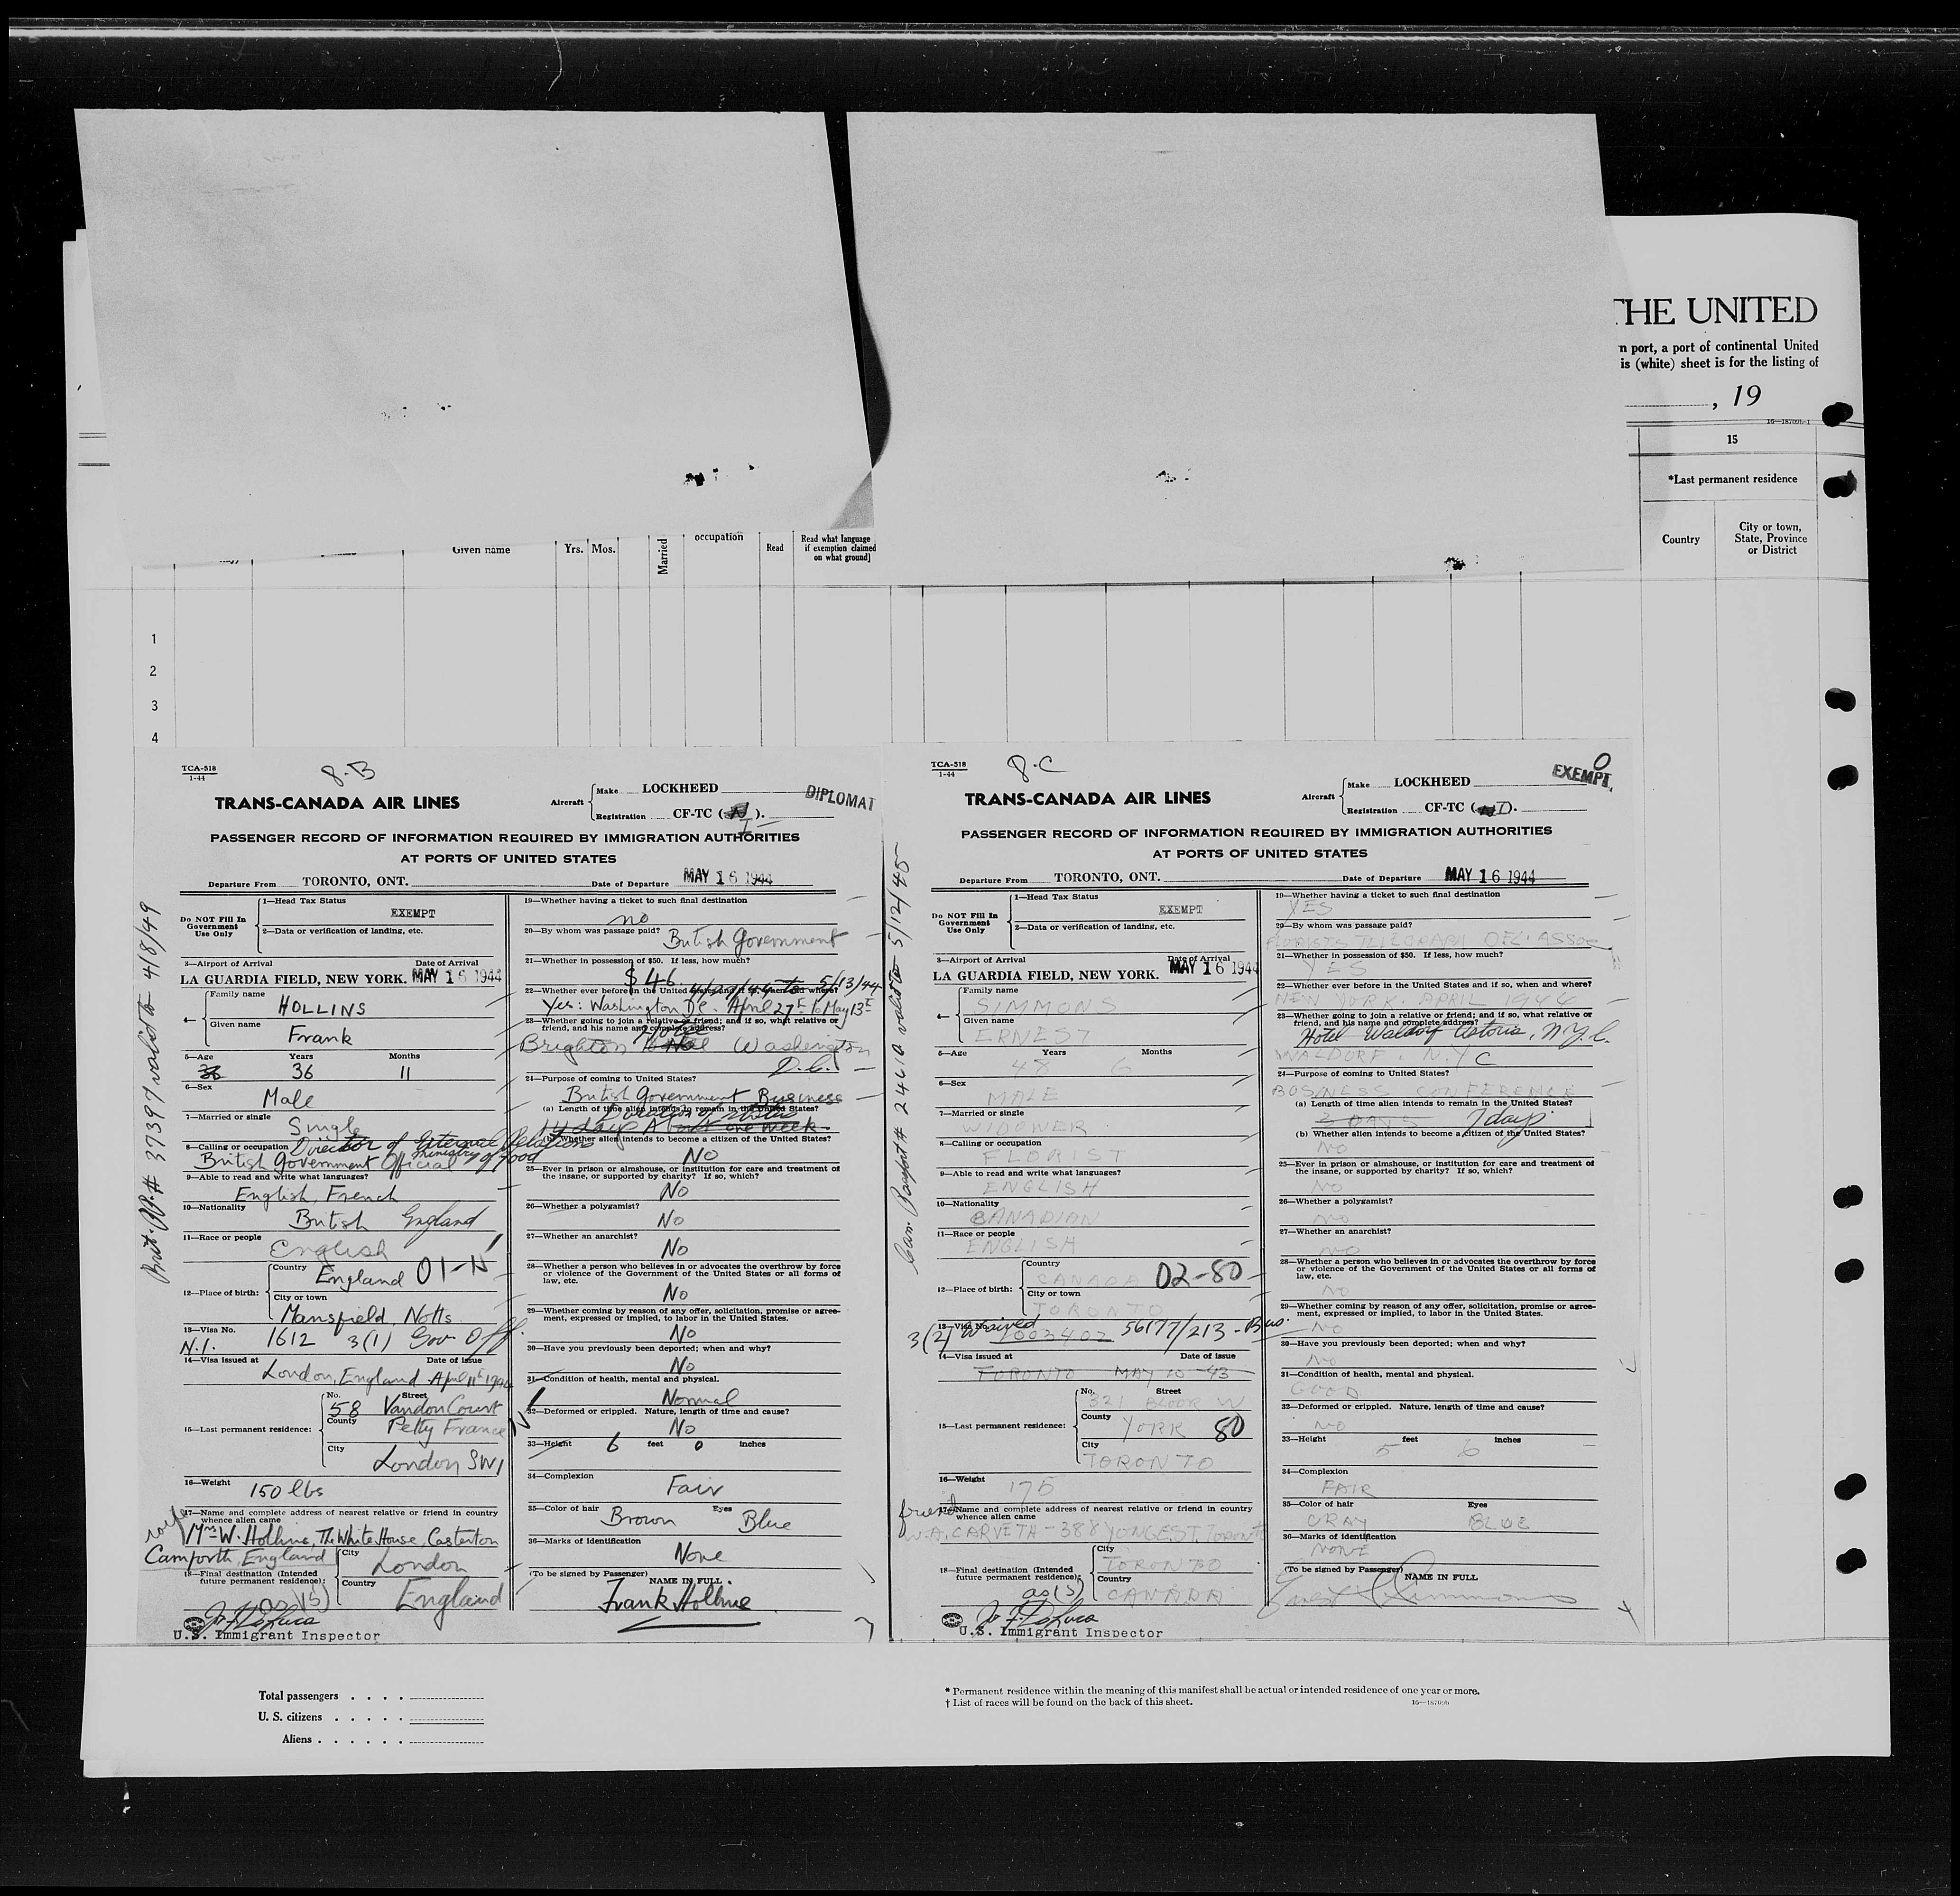 THE UNITED
n port, a port of continental United
is (white) sheet is for the listing of
, 19
16—18709b-1
15
*Last permanent residence
Country
City or town,
State, Province
or District
Given name
Yrs. Mos.
Married
occupation
Read
Read what language
if exemption claimed
on what ground]
1
2
3
4
TCA-518
1-44
8-B
TRANS-CANADA AIR LINES
Aircraft
Make LOCKHEED
Registration CF-TC ( I ).
DIPLOMAT
PASSENGER RECORD OF INFORMATION REQUIRED BY IMMIGRATION AUTHORITIES
AT PORTS OF UNITED STATES
Departure From TORONTO, ONT.
Date of Departure MAY 16 1944
Brit. PP. # 37397 valid to 4/8/49
Do NOT Fill In
Government
Use Only
1—Head Tax Status
EXEMPT
2—Data or verification of landing, etc.
3—Airport of Arrival Date of Arrival
LA GUARDIA FIELD, NEW YORK. MAY 16 1944
4—
Family name
HOLLINS
Given name
Frank
5—Age Years Months
36 36 11
6—Sex
Male
7—Married or single
Single
8—Calling or occupation Director of External Relations
British Government Official Ministry of Food
9—Able to read and write what languages?
English, French
10—Nationality
British England
11—Race or people
English
12—Place of birth:
Country
England 01-
City or town
Mansfield, Notts.
13—Visa No.
N.I. 1612 3(1) Gov. Off.
14—Visa issued at Date of issue
London, England April 11th 1944
15—Last permanent residence:
No. Street
58 Vandon Court
County
Petty France
City
London SW1
16—Weight
150 lbs
17—Name and complete address of nearest relative or friend in country
whence alien came
Mrs W. Hollins, The White House, Casterton
Carnforth, England
18—Final destination (Intended
future permanent residence):
City
London
Country
England
as (15)
U.S. Immigrant Inspector
19—Whether having a ticket to such final destination
no
20—By whom was passage paid?
British Government
21—Whether in possession of $50. If less, how much?
$46.
4/27/44 to 5/13/44
22—Whether ever before in the United States and if so, when and where?
Yes: Washington D.C. April 27th to May 13th
23—Whether going to join a relative or friend; and if so, what relative or
friend, and his name and complete address?
Brighton Hotel Washington
D.C.
24—Purpose of coming to United States?
British Government Business
(a) Length of time alien intends to remain in the United States?
14 days About one week
(b) Whether alien intends to become a citizen of the United States?
No
25—Ever in prison or almshouse, or institution for care and treatment of
the insane, or supported by charity? If so, which?
No
26—Whether a polygamist?
No
27—Whether an anarchist?
No
28—Whether a person who believes in or advocates the overthrow by force
or violence of the Government of the United States or all forms of
law, etc.
No
29—Whether coming by reason of any offer, solicitation, promise or agree-
ment, expressed or implied, to labor in the United States.
No
30—Have you previously been deported; when and why?
No
31—Condition of health, mental and physical.
Normal
32—Deformed or crippled. Nature, length of time and cause?
No
33—Height 6 feet 0 inches
34—Complexion
Fair
35—Color of hair Eyes
Brown Blue
36—Marks of identification
None
(To be signed by Passenger)
NAME IN FULL
Frank Hollins
TCA-518
1-44
8-C
TRANS-CANADA AIR LINES
Aircraft
Make LOCKHEED
Registration CF-TC ( I ).
EXEMPT.
PASSENGER RECORD OF INFORMATION REQUIRED BY IMMIGRATION AUTHORITIES
AT PORTS OF UNITED STATES
Departure From TORONTO, ONT.
Date of Departure MAY 16 1944
Can. Passport # 24610 valid to 5/12/45
Do NOT Fill In
Government
Use Only
1—Head Tax Status
EXEMPT
2—Data or verification of landing, etc.
3—Airport of Arrival Date of Arrival
LA GUARDIA FIELD, NEW YORK. MAY 16 1944
4—
Family name
SIMMONS
Given name
ERNEST
5—Age Years Months
48 6
6—Sex
MALE
7—Married or single
WIDOWER
8—Calling or occupation
FLORIST
9—Able to read and write what languages?
ENGLISH
10—Nationality
CANADIAN
11—Race or people
ENGLISH
12—Place of birth:
Country
CANADA 02-80
City or town
TORONTO
13—Visa No.
3(2) Waived 1003402 56177/213-Bus.
14—Visa issued at Date of issue
TORONTO MAY 10-43
15—Last permanent residence:
No. Street
321 BLOOR W
County
YORK 80
City
TORONTO
16—Weight
175
friend
17—Name and complete address of nearest relative or friend in country
whence alien came
W.A. CARVETH-388 YONGE ST. TORONTO
18—Final destination (Intended
future permanent residence):
City
TORONTO
Country
CANADA
as (15)
U.S. Immigrant Inspector
19—Whether having a ticket to such final destination
YES
20—By whom was passage paid?
FLORISTS TELEGRAPH DEL. ASSOC
21—Whether in possession of $50. If less, how much?
YES
22—Whether ever before in the United States and if so, when and where?
NEW YORK. APRIL 1944
23—Whether going to join a relative or friend; and if so, what relative or
friend, and his name and complete address?
Hotel Waldorf Astoria, N.Y.C.
WALDORF. N.Y C
24—Purpose of coming to United States?
BUSINESS CONFERENCE
(a) Length of time alien intends to remain in the United States?
3 DAYS 7 days
(b) Whether alien intends to become a citizen of the United States?
NO
25—Ever in prison or almshouse, or institution for care and treatment of
the insane, or supported by charity? If so, which?
NO
26—Whether a polygamist?
NO
27—Whether an anarchist?
NO
28—Whether a person who believes in or advocates the overthrow by force
or violence of the Government of the United States or all forms of
law, etc.
NO
29—Whether coming by reason of any offer, solicitation, promise or agree-
ment, expressed or implied, to labor in the United States.
NO
30—Have you previously been deported; when and why?
NO
31—Condition of health, mental and physical.
GOOD
32—Deformed or crippled. Nature, length of time and cause?
NO
33—Height 5 feet 6 inches
34—Complexion
FAIR
35—Color of hair Eyes
GRAY BLUE
36—Marks of identification
NONE
(To be signed by Passenger)
NAME IN FULL
Ernest Simmons
Total passengers . . . .
U.S. citizens . . . . .
Aliens . . . . . .
* Permanent residence within the meaning of this manifest shall be actual or intended residence of one year or more.
† List of races will be found on the back of this sheet.
16—18709b